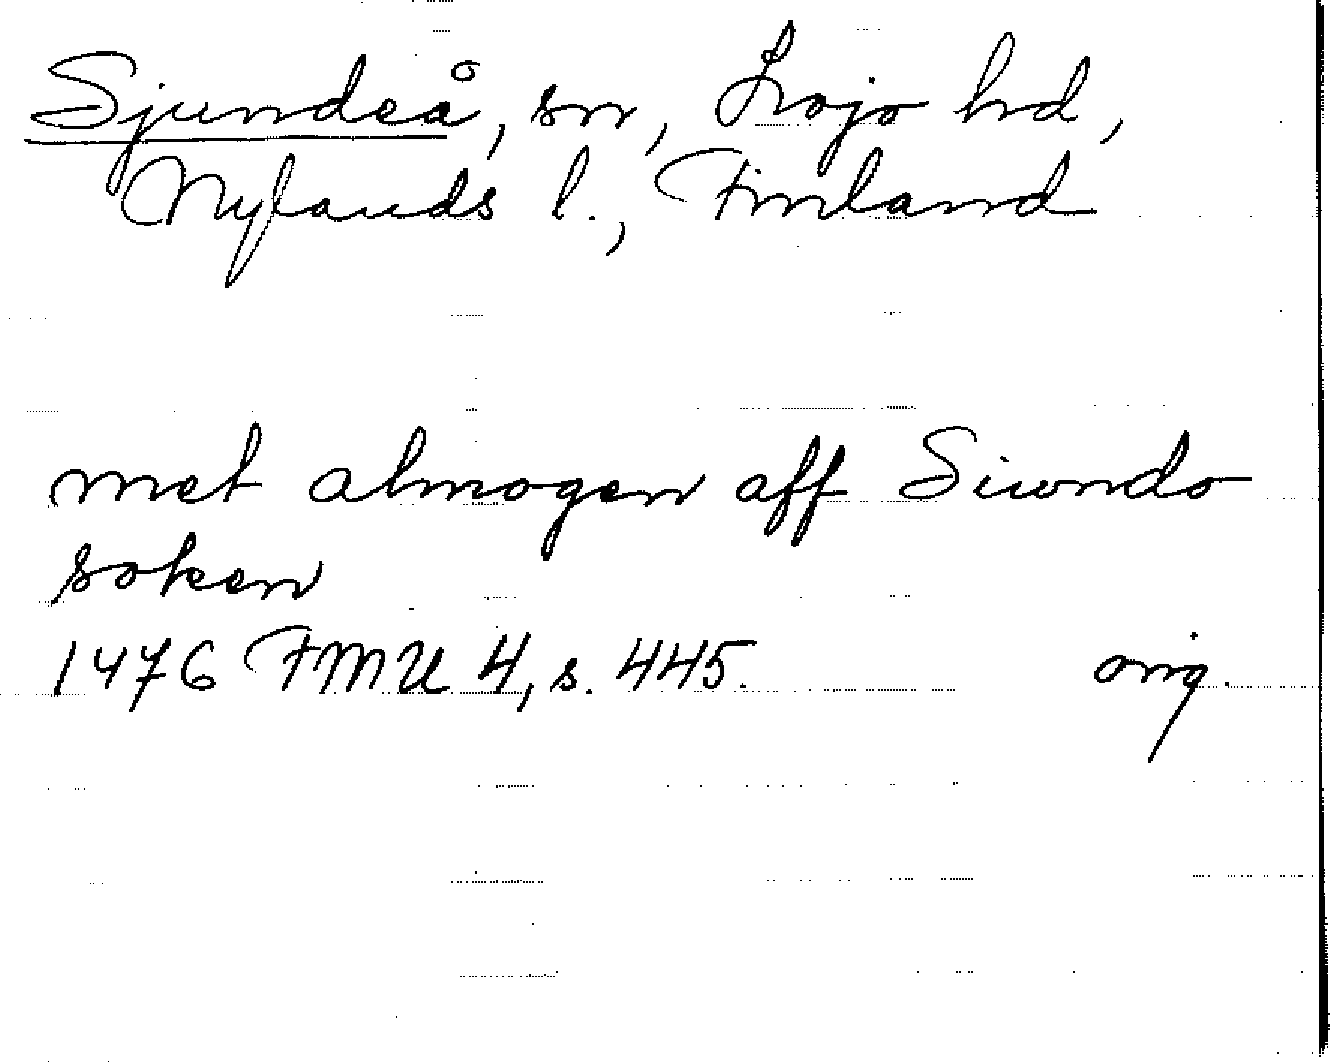 Sjundeå, sn, Lojo hd,
Nylands l., Finland
met almogen aff Siwndo
soken
1476 FMU 4, s. 445. orig.